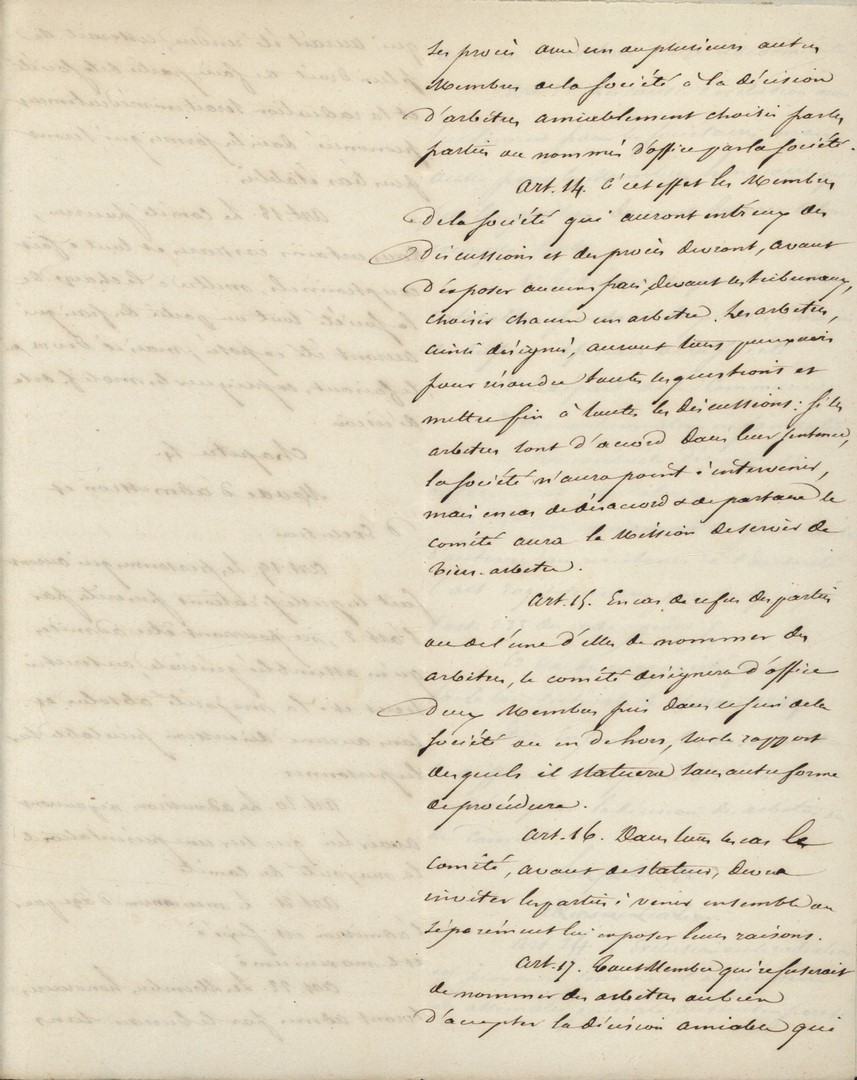 ses procès avec un ou plusieurs autres
Membres de la Société à la décision
d'arbitres amiablement choisis par les
parties ou nommés d'office par la Société.
Art. 14. à cet effet les Membres
de la Société qui auront entr'eux des
discussions et des procès devront, avant
d'exposer aucuns frais, devant les tribunaux,
choisir chacun un arbitre. Les arbitres,
ainsi désignés, auront tous pouvoirs
pour résoudre toutes les questions et
mettre fin à toutes les discussions: si les
arbitres sont d'accord dans leur sentence,
la Société n'aura point à intervenir,
mais en cas de désaccord & de partage le
comité aura la Mission de servir de
tiers-arbitre.
Art. 15. En cas de refus des parties
ou de l'une d'elles de nommer des
arbitres, le comité désignera d'office
deux Membres pris dans le sein de la
Société ou en dehors, sur le rapport
desquels il statuera sans autre forme
de procédure.
Art. 16. Dans tous les cas le
comité, avant de statuer, devra
inviter les parties à venir ensemble ou
séparément lui exposer leurs raisons.
Art. 17. Tout Membre qui refuserait
de nommer des arbitres ou bien
d'accepter la décision amiable qui